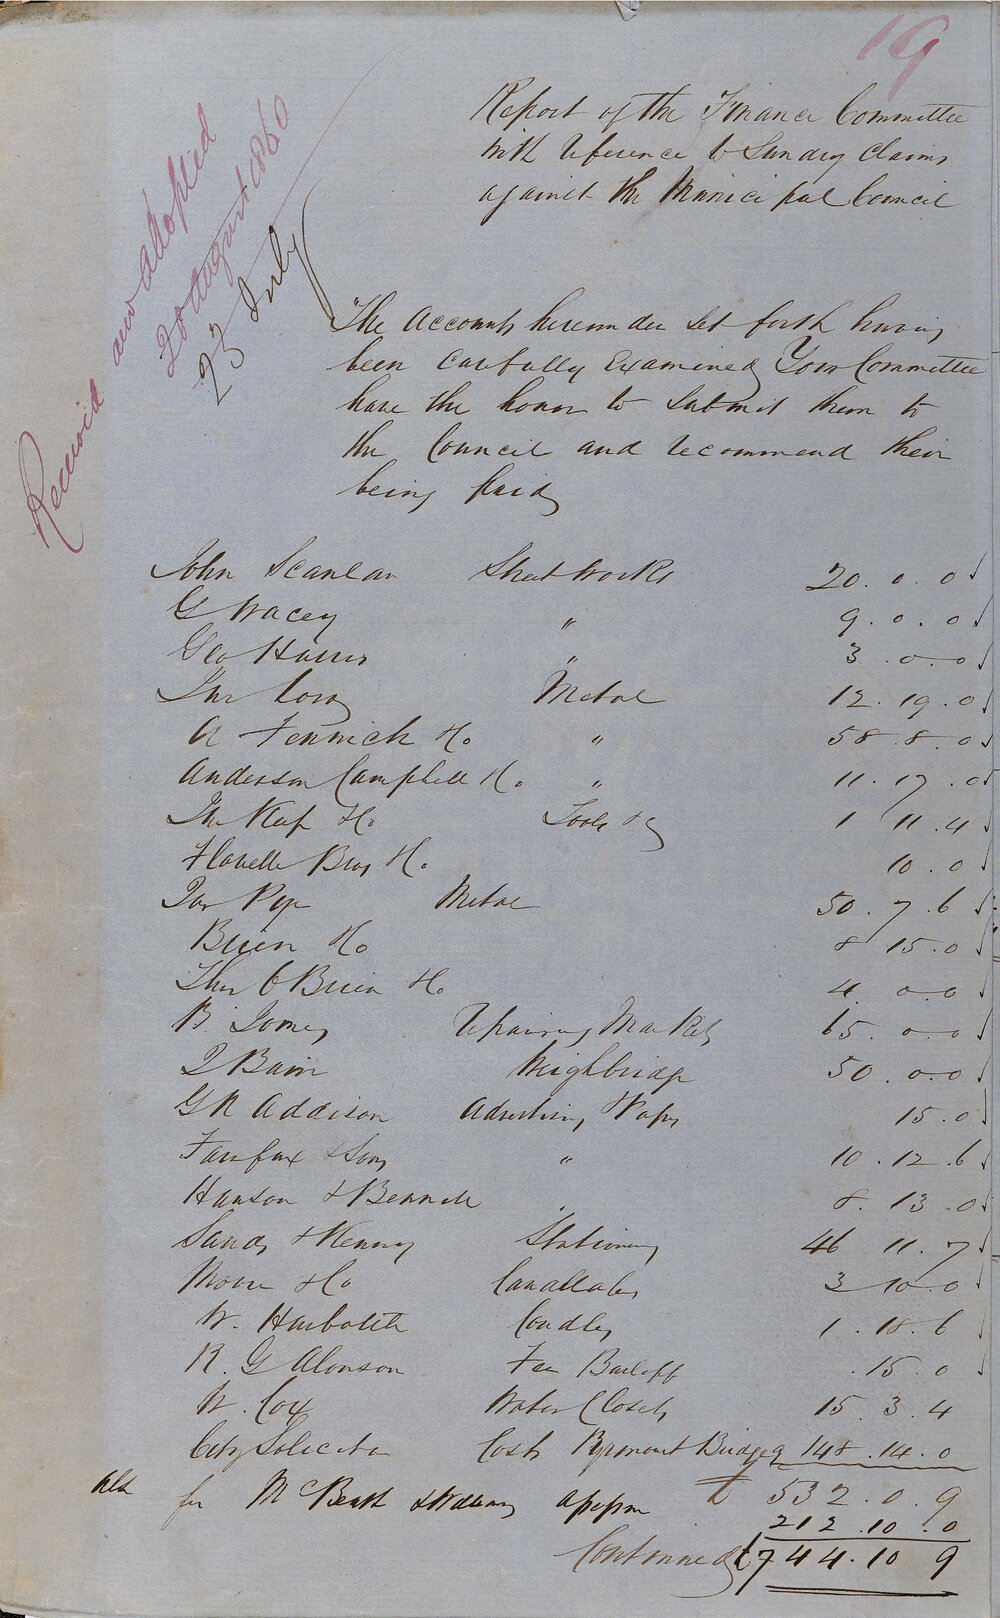 19
Received and adopted
20 August 1860
23 July
Report of the Finance Committee
with reference to Sundry Claims
against the Municipal Council
The Accounts hereunder set forth having
been Carefully Examined Your Committee
have the honor to Submit them to
the Council and recommend their
being paid
John Scanlan Street Works 20 . 0 . 0
G Wacey " 9 . 0 . 0
Geo Harris " 3 . 0 . 0
Metal 12 . 19 . 0
A Fennick & Co " 58 . 8 . 0
Anderson Campbell & Co " 11 . 17 . 0
Jno Keep & Co Tools &c 1 11 . 4
Flavelle Bros & Co 10 . 0
Jas Pye Metal 50 . 7 . 6
Brien & Co 8 15 . 0
Thos O Brien & Co 4 . 0 . 0
B. Jones repairing Markets 65 . 0 . 0
J Bain Weighbridge 50 . 0 . 0
G R Addison Advertising & Paper 15 . 0
Fairfax & Sons " 10 . 12 . 6
Hanson & Bennett 8 . 13 . 0
Sands & Kenny Stationery 46 11 . 7
Moore & Co 3 10 . 0
W. Candles 1 . 18 . 6
R. G Alonson Fee Bailiff 15 . 0
W. Cox Water Closets 15 . 3 . 4
City Solicitor Costs Pyrmont Bridge 148 . 14 . 0
£ 532 . 0 . 9
Also for McBeath & Williams 212 . 10 . 0
Continued £744 . 10 9